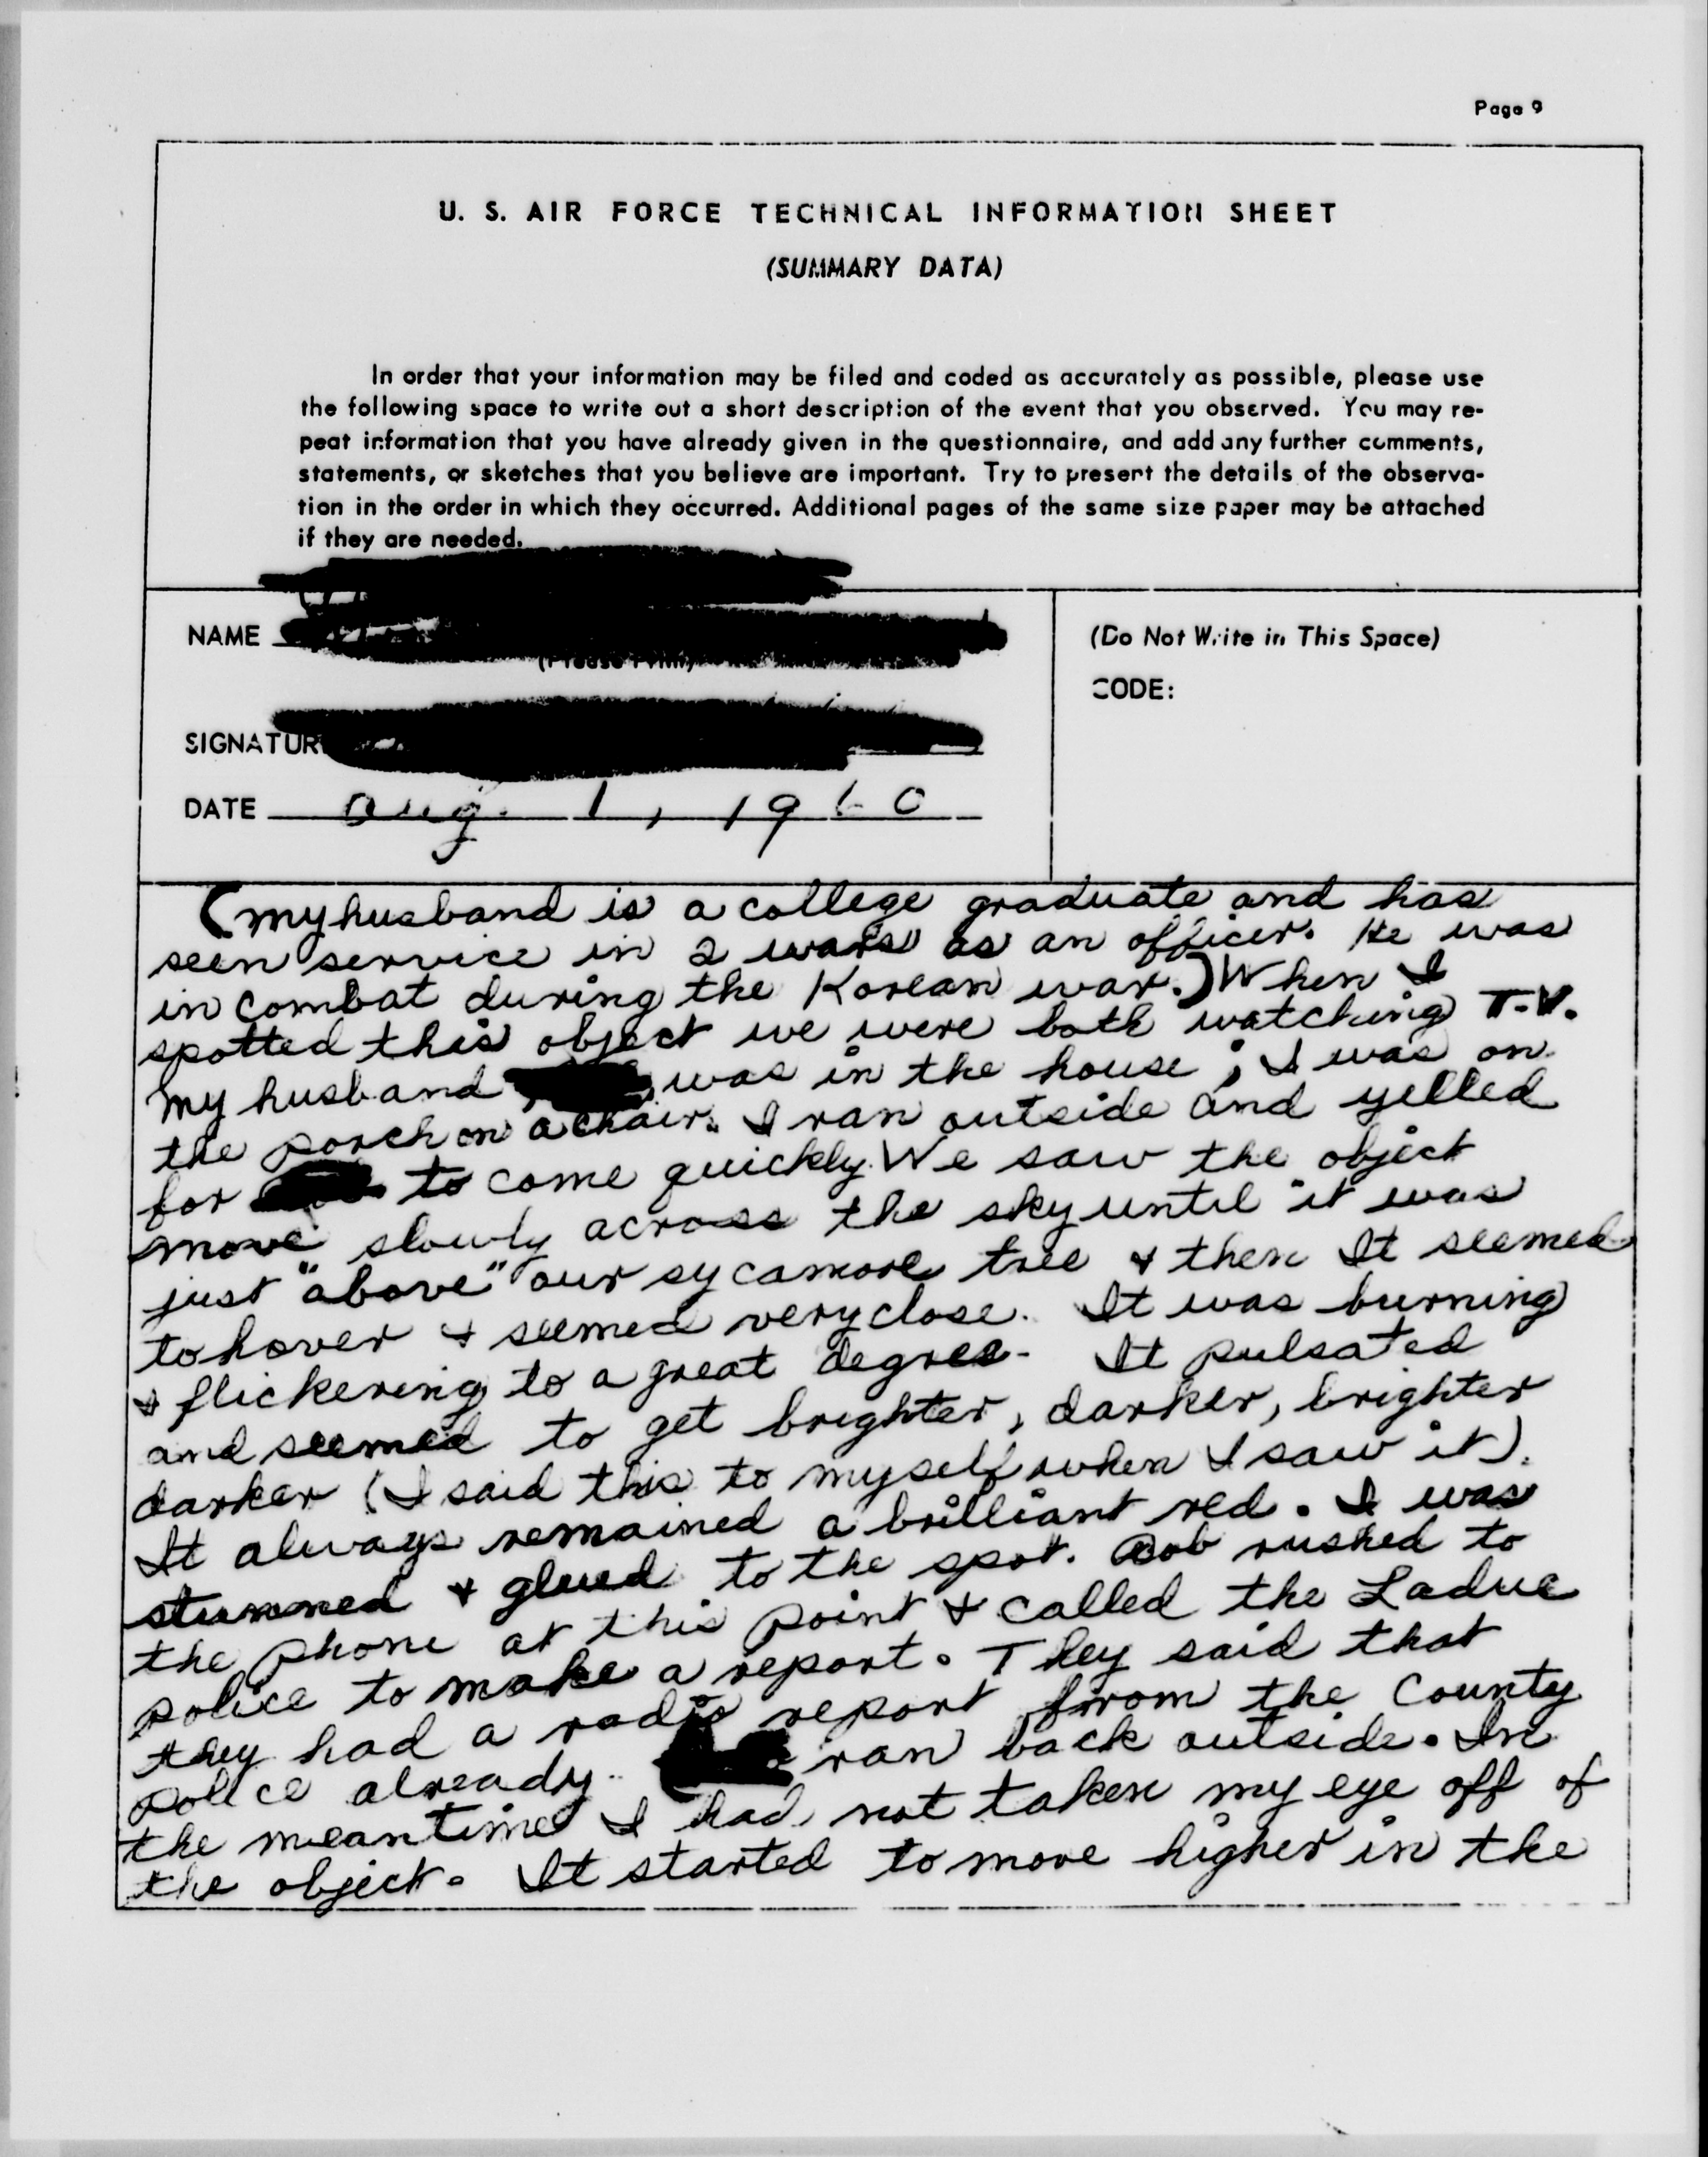 Page 9
U. S. AIR FORCE TECHNICAL INFORMATION SHEET
(SUMMARY DATA)
In order that your information may be filed and coded as accurately as possible, please use
the following space to write out a short description of the event that you observed. You may re-
peat information that you have already given in the questionnaire, and add any further comments,
statements, or sketches that you believe are important. Try to present the details of the observa-
tion in the order in which they occurred. Additional pages of the same size paper may be attached
if they are needed.
NAME
(Please Print)
(Do Not Write in This Space)
CODE:
SIGNATUR
DATE Aug. 1, 1960
(my husband is a college graduate and has
seen service in 2 wars as an officer. He was
in combat during the Korean war.) When I
spotted this object we were both watching T.V.
My husband, , was in the house; I was on
the porch on a chair. I ran outside and yelled
for to come quickly. We saw the object
move slowly across the sky until it was
just "above" our sycamore tree & then It seemed
to hover & seemed very close. It was burning
& flickering to a great degree. It pulsated
and seemed to get brighter, darker, brighter
darker (I said this to myself when I saw it).
It always remained a brilliant red. I was
stunned & glued to the spot. Bob rushed to
the phone at this point & called the Ladue
police to make a report. They said that
they had a radio report from the County
police already. ran back outside. In
the meantime I had not taken my eye off of
the object. It started to move higher in the